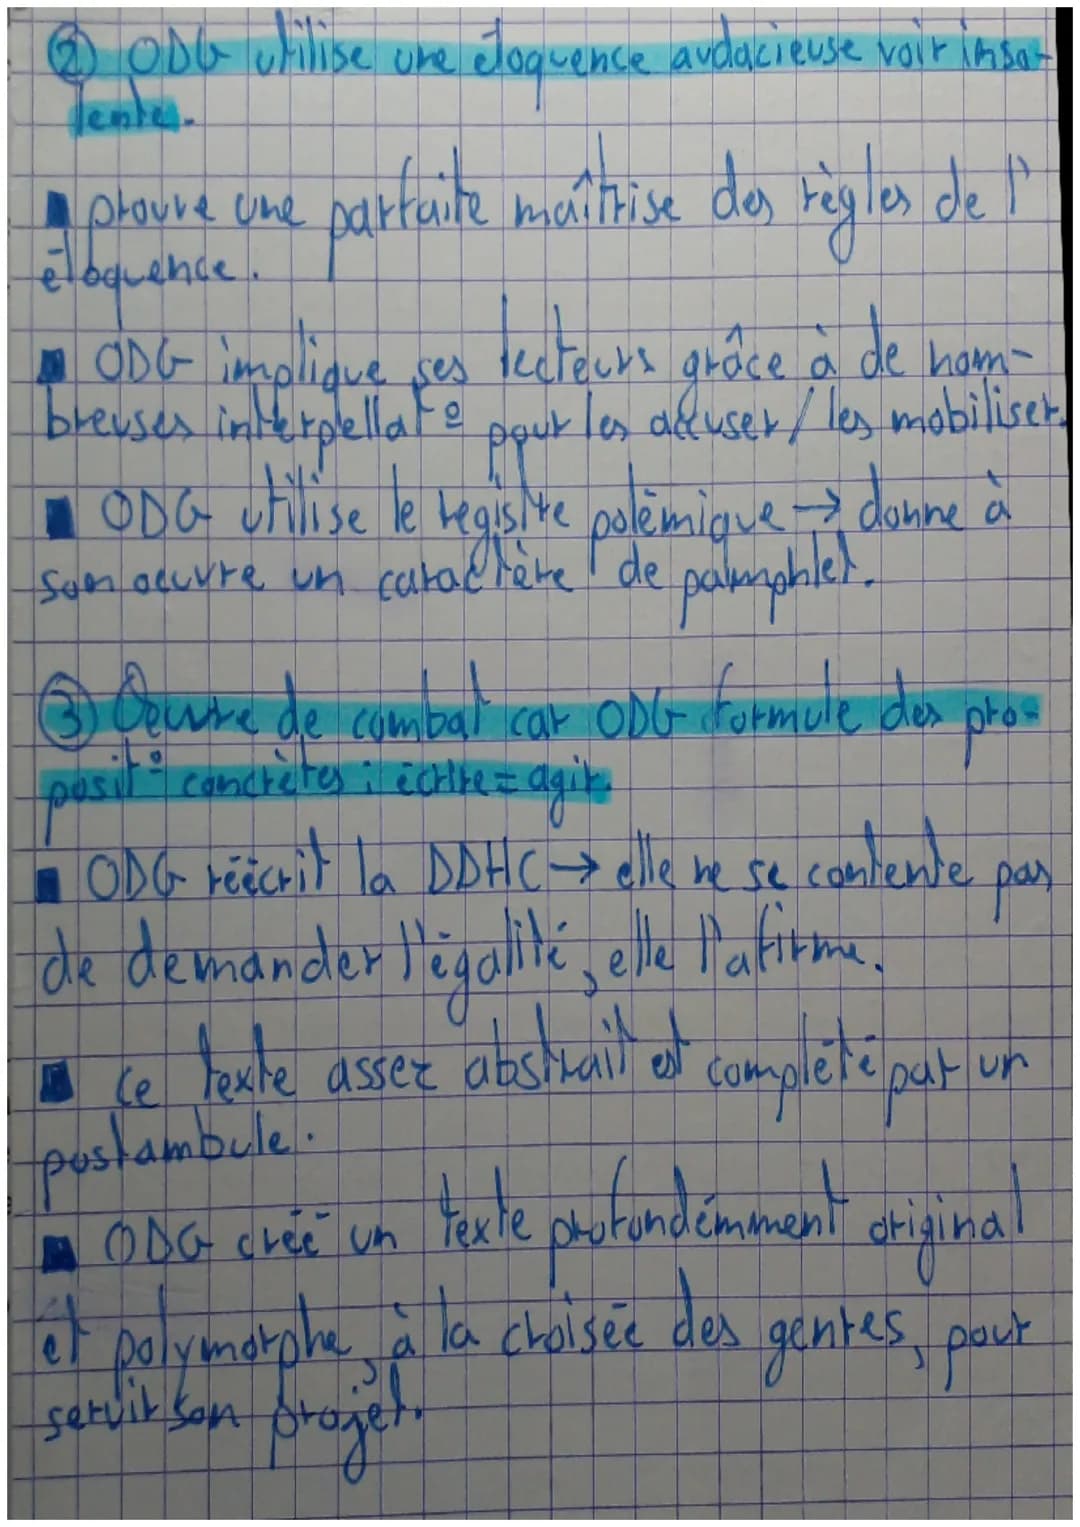 ② ODG utilise une éloquence audacieuse voir inso-
lente.
▪ prouve une parfaite maîtrise des règles de l'
éloquence.
▪ ODG implique ses lecteurs grâce à de nom-
breuses interpellat° pour les accuser / les mobiliser.
▪ ODG utilise le registre polémique → donne à
son oeuvre un caractère de pamphlet.
③ Oeuvre de combat car ODG formule des pro-
posit° concrètes : écrire = agir.
▪ ODG réécrit la DDHC → elle ne se contente pas
de demander l'égalité, elle l'afirme.
▪ Ce texte assez abstrait est complété par un
postambule.
▪ ODG créé un texte profondémment original
et polymorphe, à la croisée des genres, pour
servir son projet.